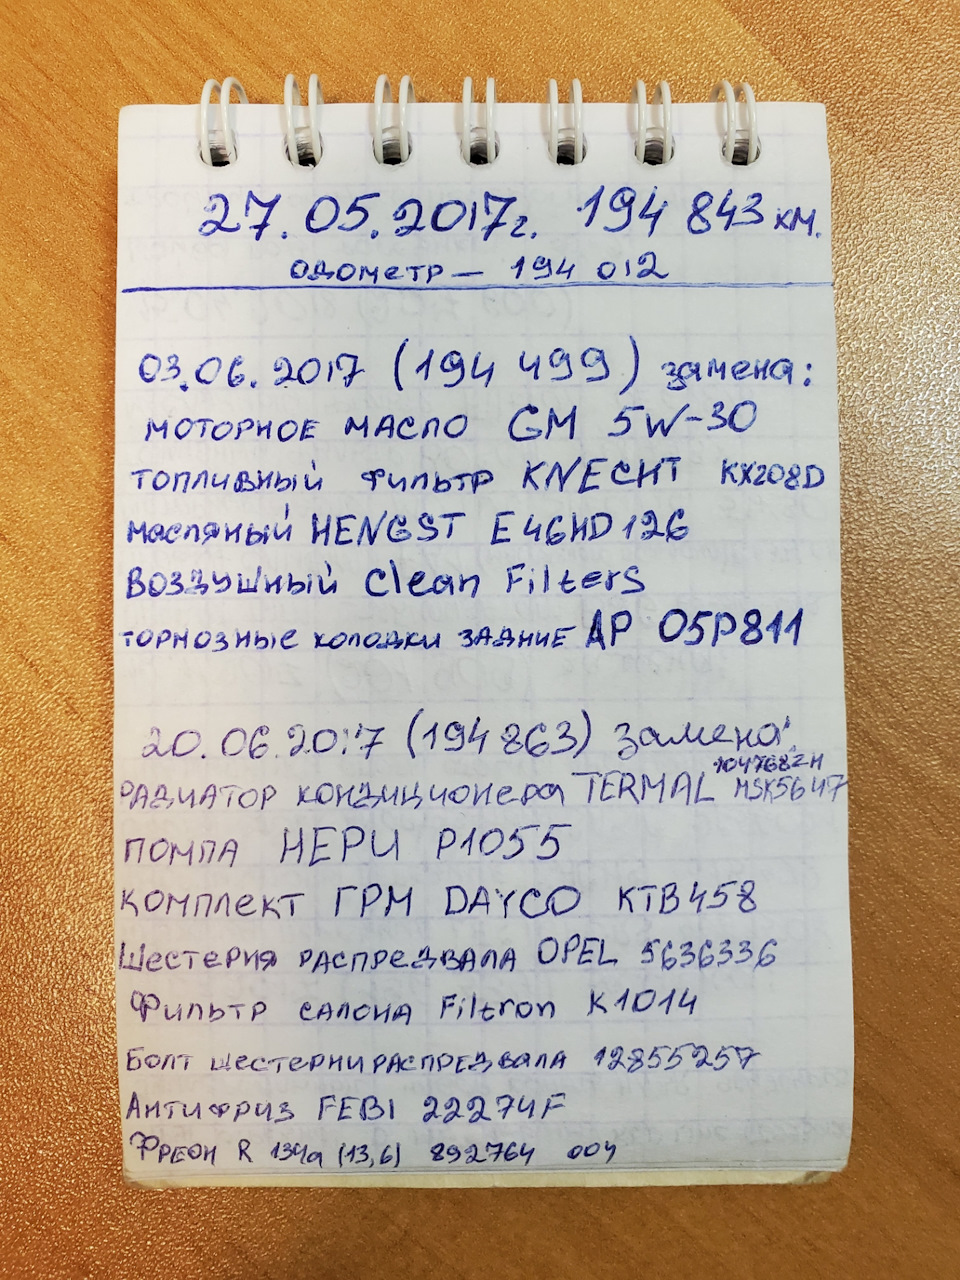 27.05.2017г. 194 843 км.
одометр — 194 012
03.06.2017 (194 499) замена:
моторное масло GM 5W-30
топливный фильтр KNECHT KX208D
масляный HENGST E46HD126
Воздушный Clean Filters
тормозные колодки задние AP 05P811
20.06.2017 (194 863) замена:
радиатор кондиционера TERMAL 104768ZH
MSK5647
помпа HEPU P1055
комплект ГРМ DAYCO KTB458
Шестерня распредвала OPEL 5636336
Фильтр салона Filtron K1014
Болт шестерни распредвала 12855257
Антифриз FEBI 22274F
Фреон R 134a (13,6) 892764 004